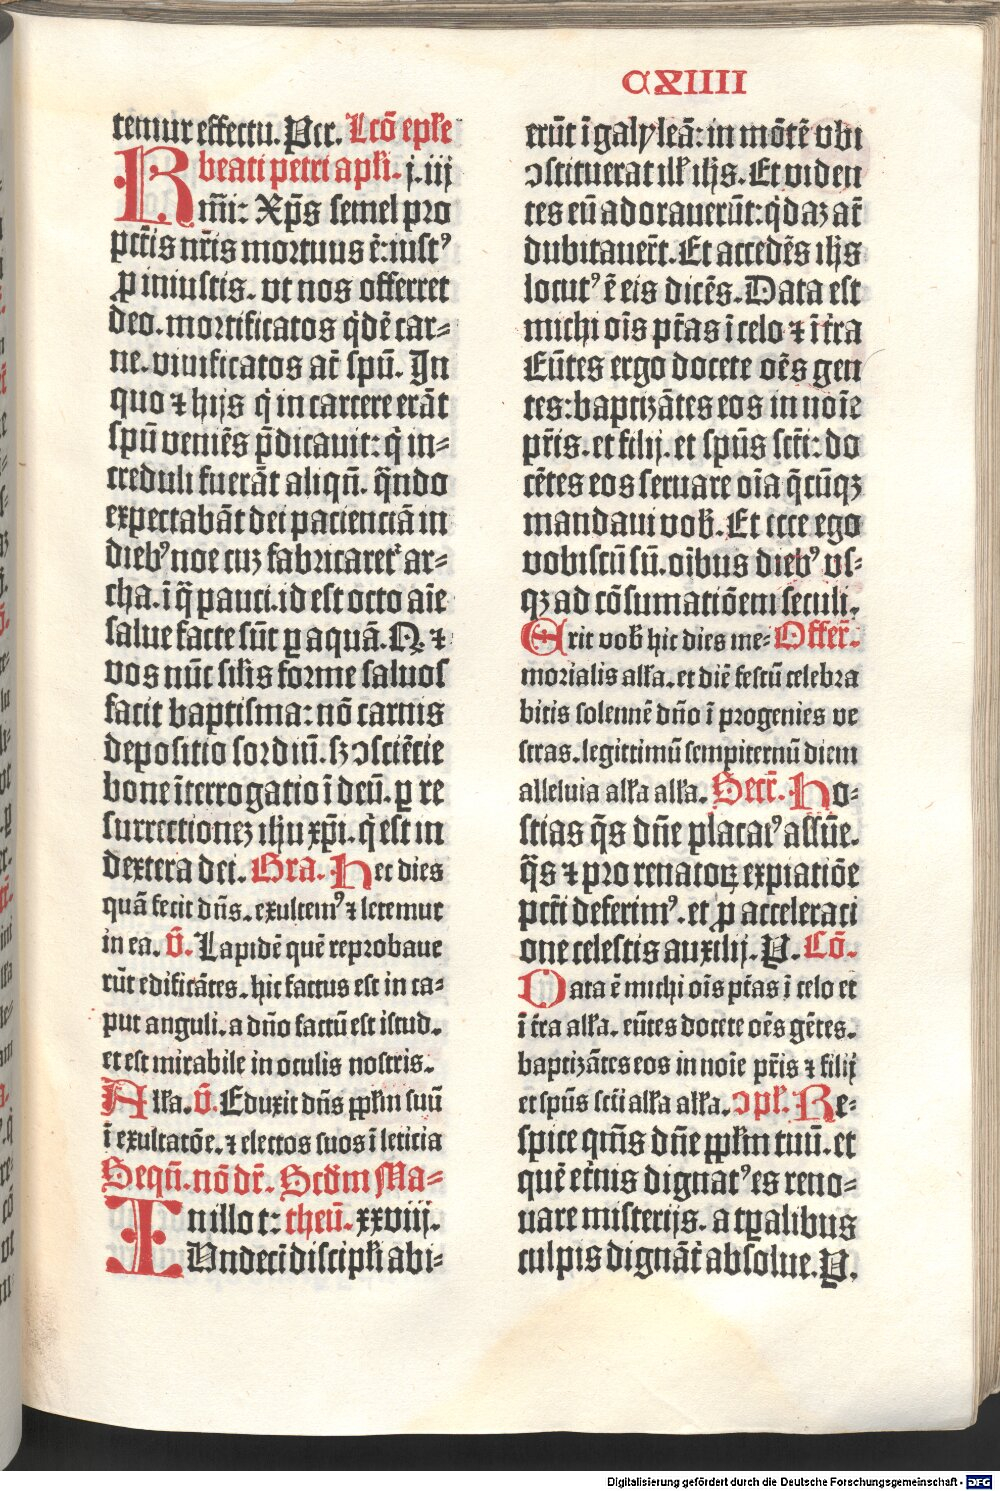 CXIIII
temur effectu. Per. Lcõ epłe
beati petri apłi. j. iij
Rm̃i: Xp̃s semel pro
pctĩs nr̃is mortuus ẽ: iustꝰ
ꝓ iniustis. vt nos offerret
deo. mortificatos q̇dẽ car⸗
ne. viuificatos at̃ spũ. In
quo ⁊ hijs q̇ in carcere erãt
spũ veniẽs p̃dicauit: q̇ in⸗
creduli fuerãt aliqñ. qñdo
expectabãt dei pacienciã in
diebꝰ noe cuz fabricaret᷑ ar⸗
cha. ĩ q̃ pauci. id est octo aĩe
salue facte sũt ꝑ aquã. Q ⁊
vos nũc silis forme saluos
facit baptisma: nõ carnis
depositio sordiũ. sꝫ ↄsciẽcie
bone ĩterrogatio ĩ deũ. ꝑ re
surrectionez ihũ xp̃i. q̇ est in
dextera dei. Gra. Hec dies
quã fecit dñs. exultemꝰ ⁊ letemur
in ea. ṽ. Lapidẽ quẽ reprobaue
rũt edificãtes. hic factus est in ca⸗
put anguli. a dño factũ est istud.
et est mirabile in oculis nostris.
Alła. ṽ. Eduxit dñs pp̃łm suũ
ĩ exultatõe. ⁊ electos suos ĩ leticia
Seqũ. nõ dr̃. Scd̃m Ma⸗
In illo t: theũ. xxviij.
Vndecĩ discipłi abi⸗
erũt ĩ galyleã: in mõtẽ vbi
ↄstituerat ilł ihs̃. Et viden
tes eũ adorauerũt: q̇daz at̃
dubitauer̃t. Et accedẽs ihs̃
locutꝰ ẽ eis dicẽs. Data est
michi oĩs pt̃as ĩ celo ⁊ ĩ tr̃a
Eũtes ergo docete oẽs gen
tes: baptizãtes eos in noĩe
pr̃is. et filij. et spũs scti̇: do
cẽtes eos seruare oĩa q̃cũqꝫ
mandaui vob̃. Et ecce ego
vobiscũ sũ. oĩbus diebꝰ vs⸗
qꝫ ad cõsumatiõem seculi.
Erit vob̃ hic dies me⸗ Offer̃.
morialis alła. et diẽ festũ celebra
bitis solennẽ dño ĩ progenies ve
stras. legittimũ sempiternũ diem
alleluia alła alła. Secr̃. Ho⸗
stias q̃s dñe placatꝰ assũe.
q̃s ⁊ pro renatoꝝ expiatiõe
pcti̇ deferimꝰ. et ꝓ acceleraci
one celestis auxilij. P. Cõ.
Data ẽ michi oĩs pt̃as ĩ celo et
ĩ tr̃a alła. eũtes docete oẽs gẽtes.
baptizãtes eos in noĩe pr̃is ⁊ filij
et spũs scti̇ alła alła. ↄpł. Re⸗
spice qm̃s dñe pp̃łm tuũ. et
quẽ et̃nis dignatꝰ es reno⸗
uare misterijs. a tꝑalibus
culpis dignãt᷑ absolue. P.
Digitalisierung gefördert durch die Deutsche Forschungsgemeinschaft - DFG